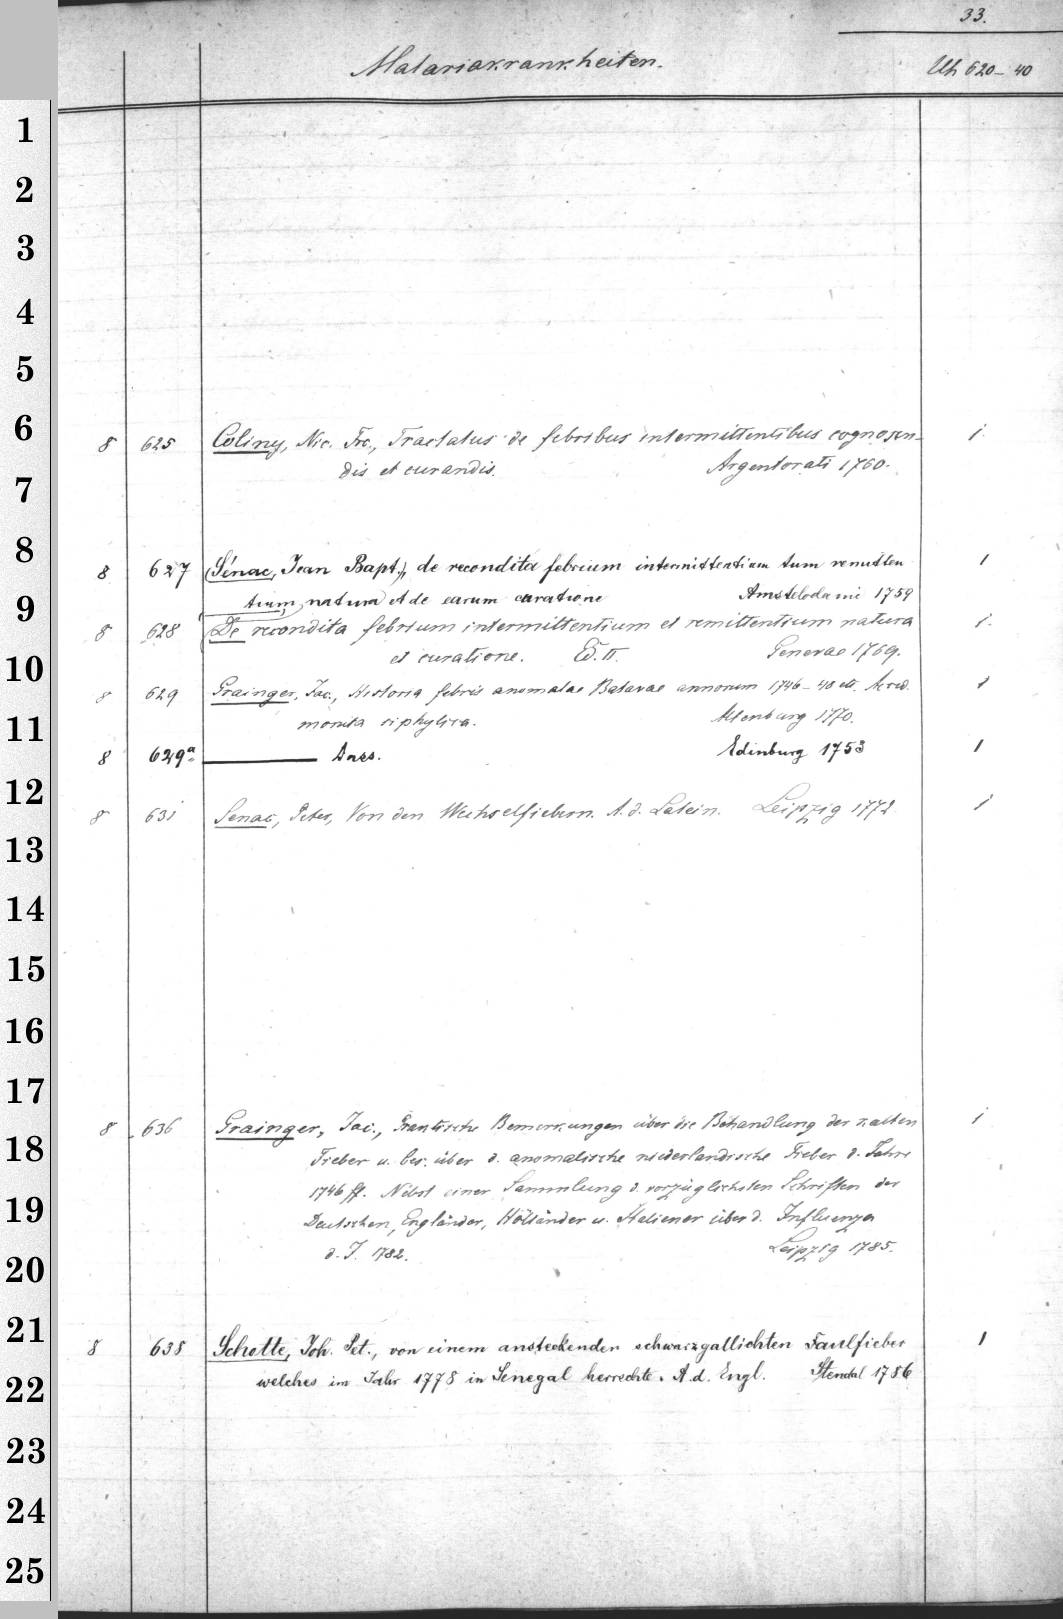 33.
Malariakrankheiten. Uh 620-40
1
2
3
4
5
6
8 625 Coliny, Nic. Frc., Tractatus de febribus intermittentibus cognoscen- 1.
dis et curandis. Argentorati 1760.
7
8
8 627 (Sénac, Jean Bapt.), de recondita febrium intermittentium tum remitten 1
9
tium natura et de earum curatione Amstelodami 1759
8 628 De recondita febrium intermittentium et remittentium natura 1.
10
et curatione. Ed. II. Genevae 1769.
8 629 Grainger, Jac., Historia febris anomalae Batavae annorum 1746-48 etc. Acced. 1
11
monita siphylica. Altenburg 1770.
8 629a. ——— Dass. Edinburg 1753 1
12
8 631 Senac, Peter, Von den Wechselfiebern. A. d. Latein. Leipzig 1772 1
13
14
15
16
17
8 636 Grainger, Jac., Praktische Bemerkungen über die Behandlung der kalten 1
18
Fieber u. bes. über d. anomalische niederländische Fieber d. Jahre
1746 ff. Nebst einer Sammlung d. vorzüglichsten Schriften der
19
Deutschen, Engländer, Holländer u. Italiener über d. Influenza
d. J. 1782. Leipzig 1785.
20
21
8 638 Schotte, Joh. Pet., von einem ansteckenden schwarzgallichten Faulfieber 1
22
welches im Jahr 1778 in Senegal herrschte. A. d. Engl. Stendal 1786
23
24
25